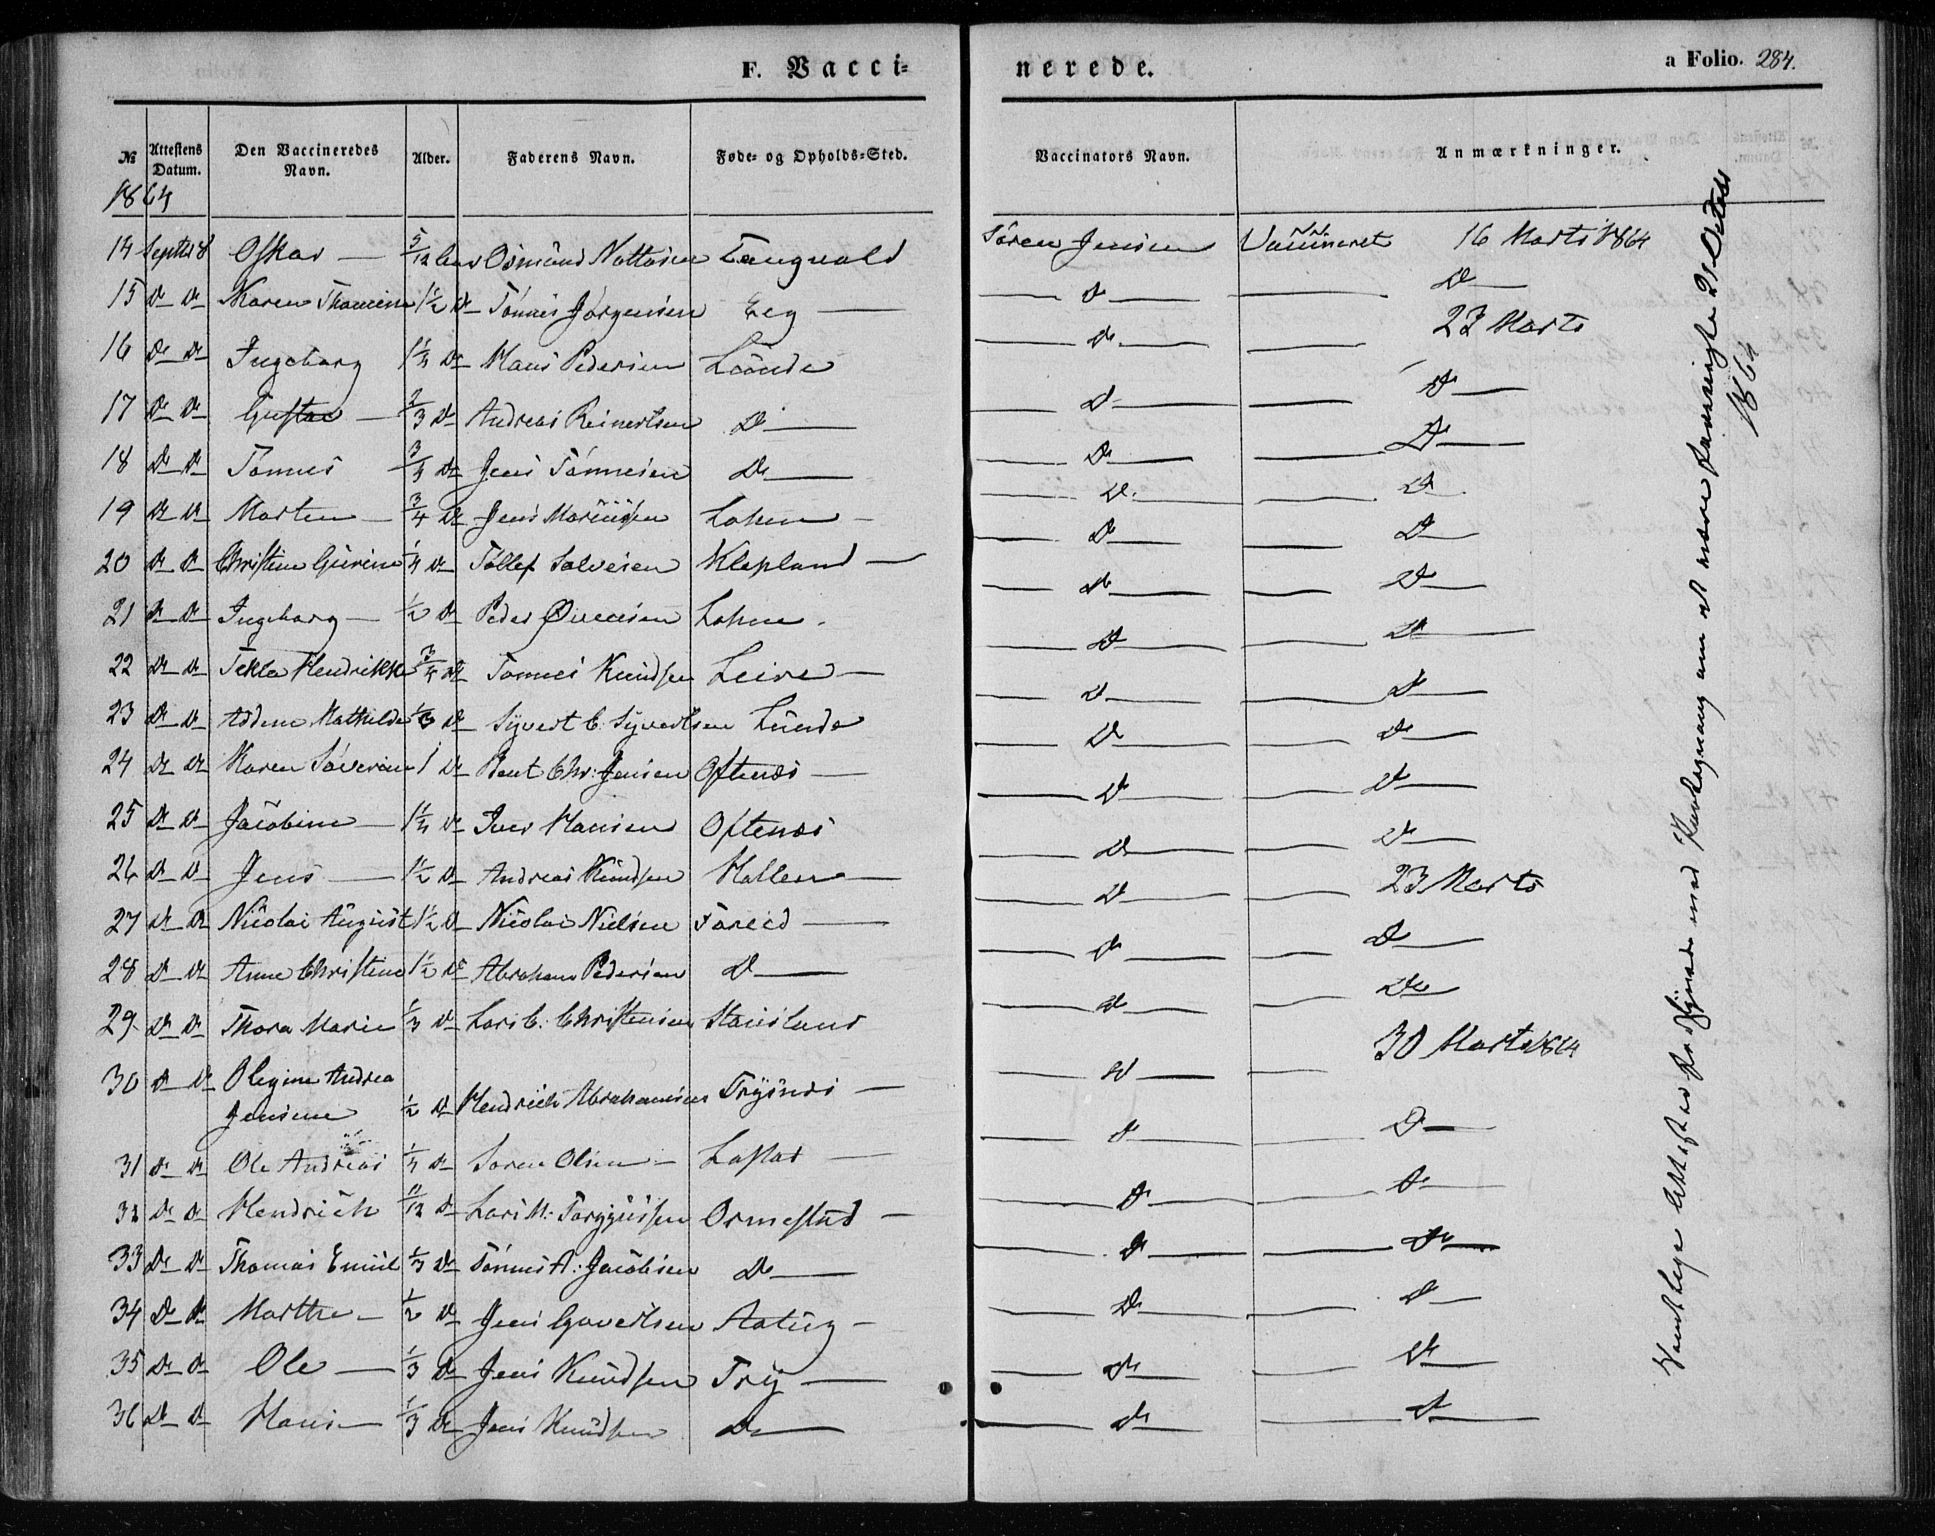 F. Vacci-
nerede.
a Folio. 284.
№ Attestens Datum. Den Vaccineredes Navn. Alder. Faderens Navn. Føde- og Opholds-Sted. Vaccinators Navn. Anmærkninger.
1864
14 Septbr 8 Oskar 5/12 Aar Osmund Nottosen Tangvald Søren Jensen Vaccineret 16 Marts 1864
15 Do Do Karen Thomine 1 1/2 Do Tönnes Jörgensen Eeg Do Do
16 Do Do Ingeborg 1 1/4 Do Hans Pedersen Lunde Do 23 Marts
17 Do Do Gustav 2/3 Do Andreas Reinertsen Do Do Do
18 Do Do Tönnes 3/4 Do Jens Tönnesen Do Do Do
19 Do Do Morten 3/4 Do Jens Mortensen Lohne Do Do
20 Do Do Christine Gurine 1/4 Do Tollef Salvesen Klepland Do Do
21 Do Do Ingeborg 1/2 Do Peder Övensen Lohne Do Do
22 Do Do Tekla Hendrikke 3/4 Do Tönnes Knudsen Leire Do Do
23 Do Do Addine Mathilde 1/3 Do Syvert C. Syvertsen Lunde Do Do
24 Do Do Karen Severine 1 Do Bent Chr: Jensen Oftenes Do Do
25 Do Do Jacobine 1 1/4 Do Iver Hansen Oftenes Do Do
26 Do Do Jens 1 1/2 Do Andreas Knudsen Hallen Do 23 Marts
27 Do Do Nicolai August 1 1/2 Do Nicolai Nielsen Føreid Do Do
28 Do Do Anne Christine 1 1/2 Do Abraham Pedersen Do Do Do
29 Do Do Thora Marie 1/3 Do Lars C. Christensen Stausland Do 30 Marts 1864
30 Do Do Olegine Andrea
Jensine 1/2 Do Hendrich Abrahamsen Trysnes Do Do
31 Do Do Ole Andreas 1/4 Do Søren Olsen Lastad Do Do
32 Do Do Hendrich 11/12 Do Lars M. Torgjusen Ormestad Do Do
33 Do Do Thomas Emiil 1/3 Do Tönnes A: Jacobsen Do Do Do
34 Do Do Marthe 1/2 Do Jens Govertsen Do Do
35 Do Do Ole 1/3 Do Jens Knudsen Try Do Do
36 Do Do Hans 1/3 Do Jens Knudsen Do Do Do
Samtlige Attester forsynede med Paategning om at være 21 Octobr
1864